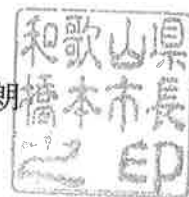 朗
和歌山県
橋本市長
之印